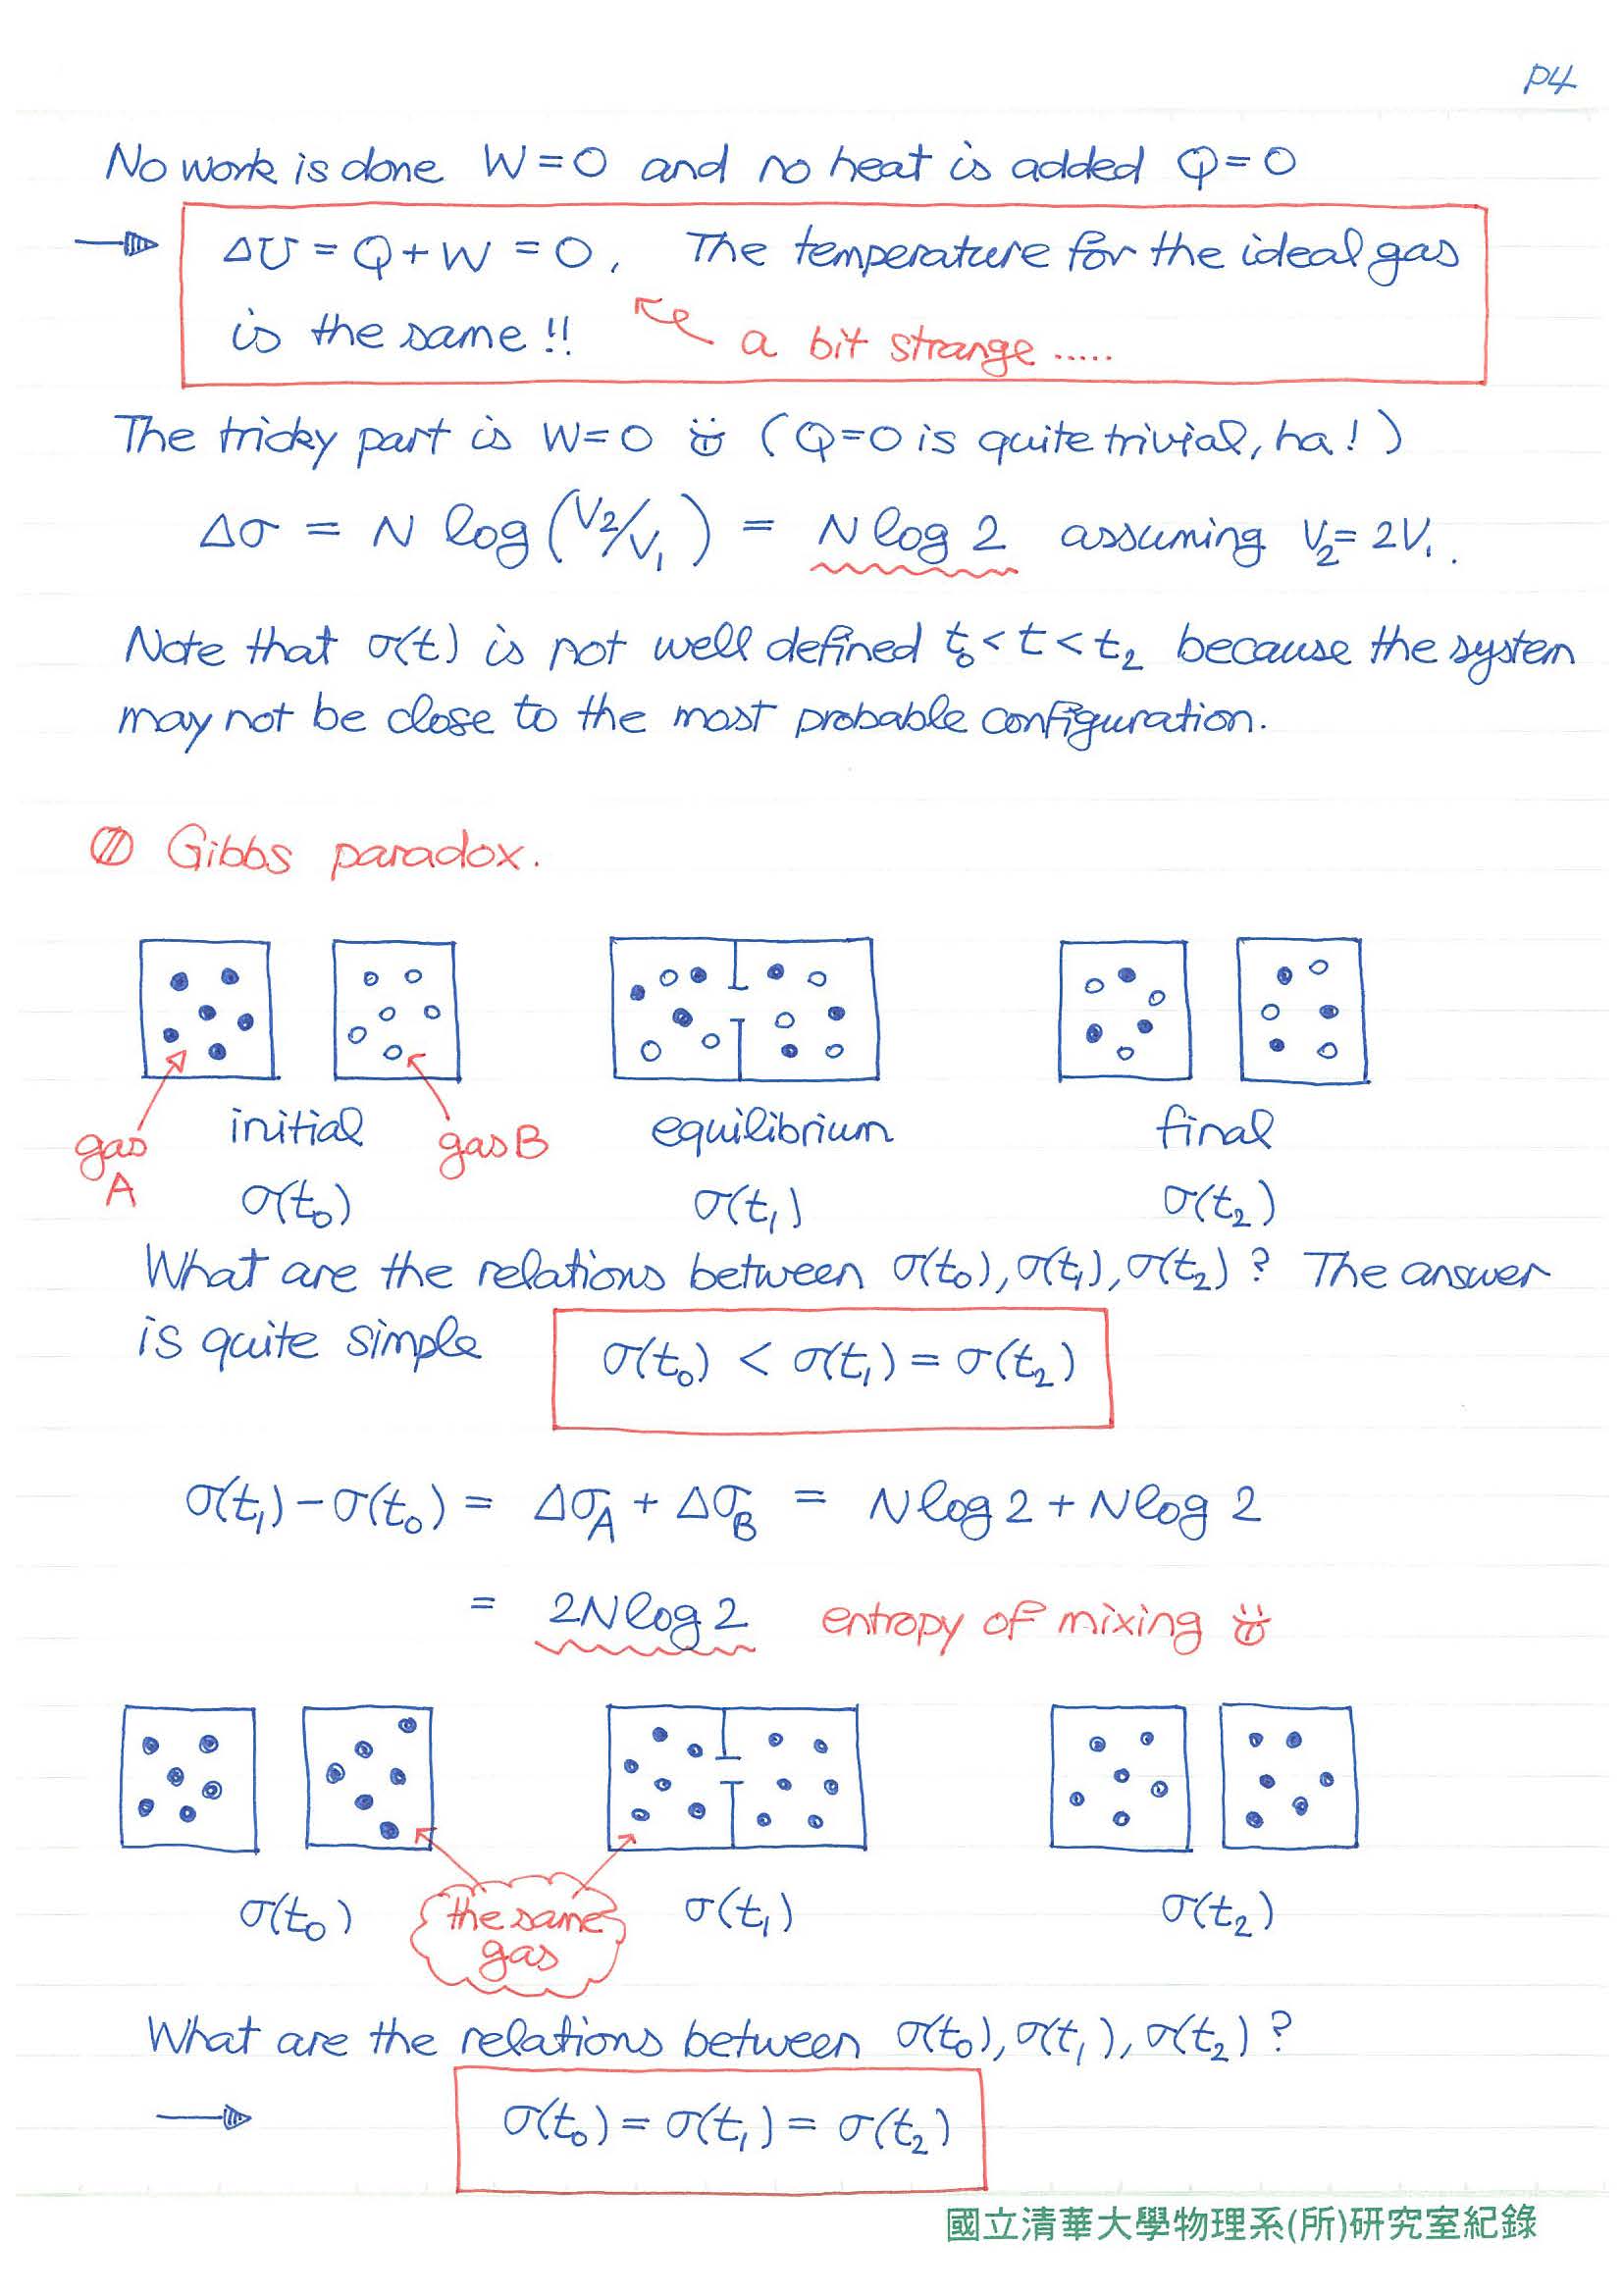 P4
No work is done W=0 and no heat is added Q=0
ΔU = Q+W = 0, The temperature for the ideal gas
is the same!! a bit strange.....
The tricky part is W=0 (Q=0 is quite trivial, ha!)
Δσ = N log(V₂/V₁) = N log 2 assuming V₂=2V₁.
Note that σ(t) is not well defined t₀<t<t₂ because the system
may not be close to the most probable configuration.
Gibbs paradox.
initial equilibrium final
gas A gas B
σ(t₀) σ(t₁) σ(t₂)
What are the relations between σ(t₀), σ(t₁), σ(t₂)? The answer
is quite simple σ(t₀) < σ(t₁) = σ(t₂)
σ(t₁)-σ(t₀) = Δσ_A + Δσ_B = N log 2 + N log 2
= 2N log 2 entropy of mixing
σ(t₀) the same gas σ(t₁) σ(t₂)
What are the relations between σ(t₀), σ(t₁), σ(t₂)?
σ(t₀) = σ(t₁) = σ(t₂)
國立清華大學物理系(所)研究室紀錄